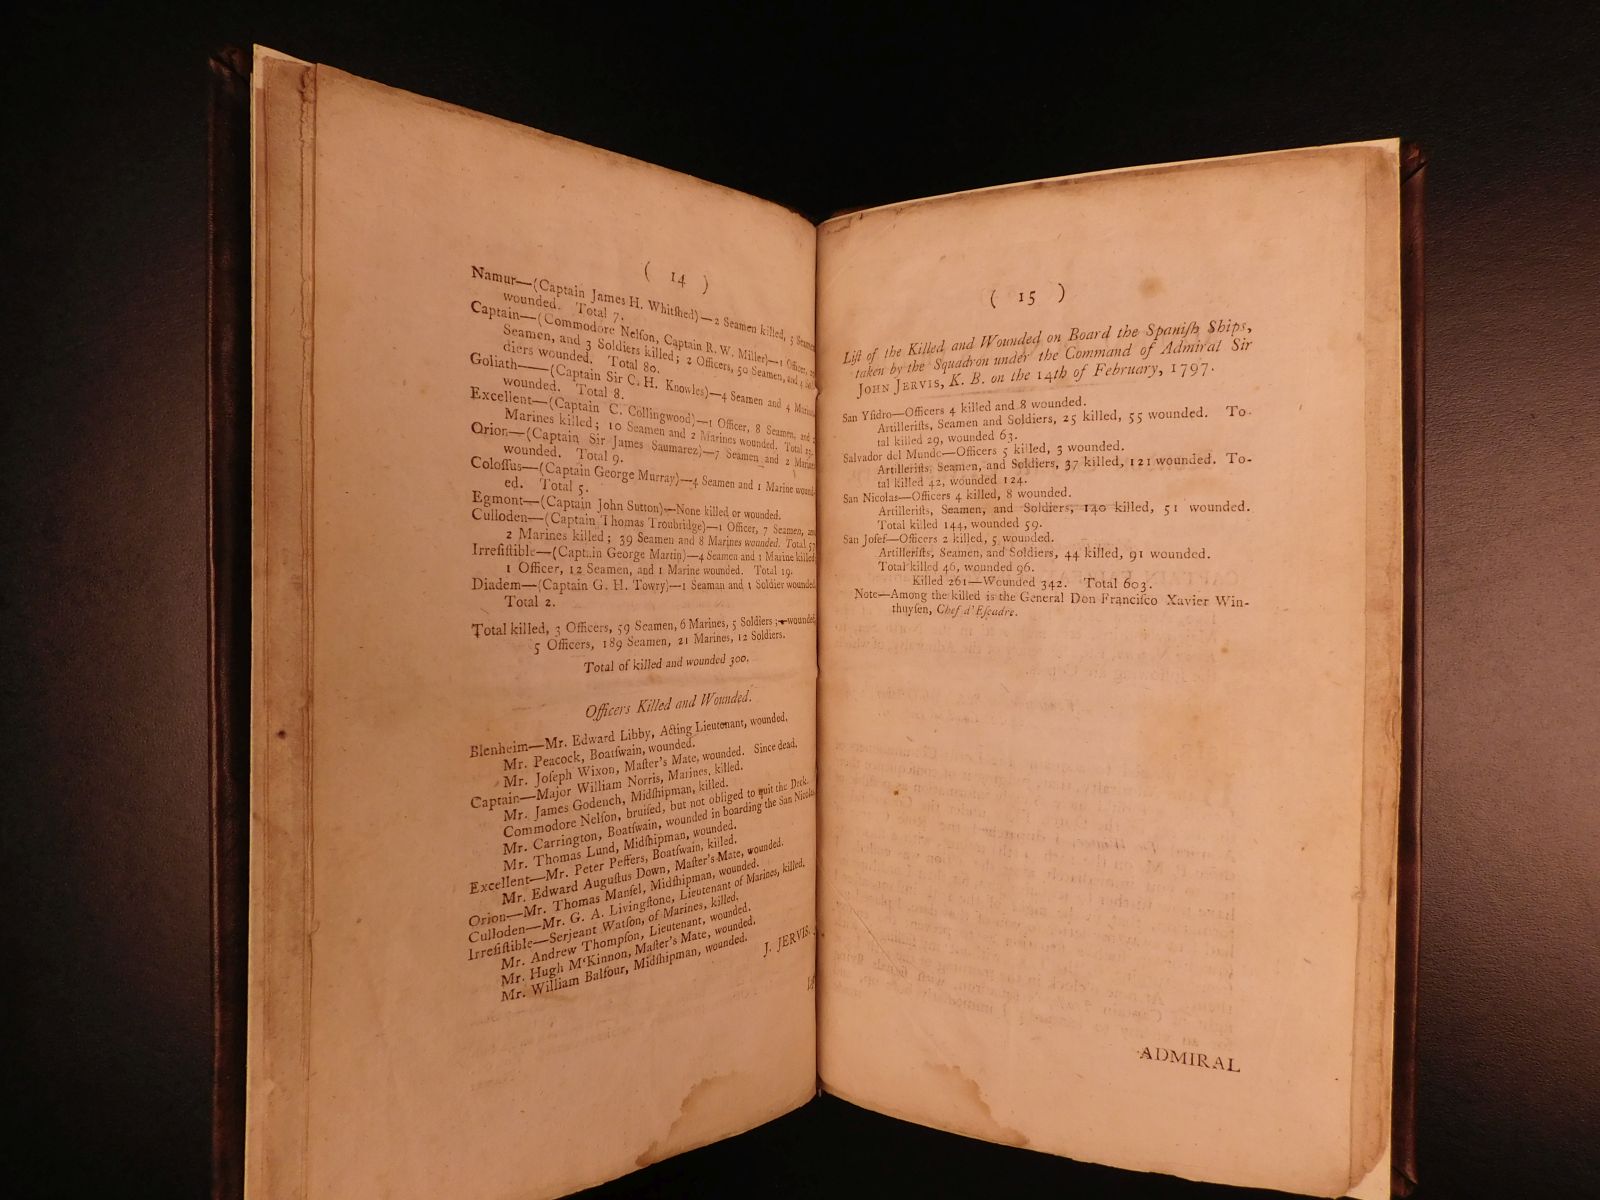 ( 14 )
Namur—(Captain James H. Whitſhed)—2 Seamen killed, 5 Seamen
wounded. Total 7.
Captain—(Commodore Nelſon, Captain R. W. Miller)—1 Officer,
Seamen, and 3 Soldiers killed; 2 Officers, 50 Seamen, and 4 Sol-
diers wounded. Total 80.
Goliath——(Captain Sir C. H. Knowles)—4 Seamen and 4 Marines
wounded. Total 8.
Excellent—(Captain C. Collingwood)—1 Officer, 8 Seamen, and 2
Marines killed; 10 Seamen and 2 Marines wounded. Total 23.
Orion—(Captain Sir James Saumarez)—7 Seamen and 2 Marines
wounded. Total 9.
Coloſſus—(Captain George Murray)—4 Seamen and 1 Marine wound-
ed. Total 5.
Egmont—(Captain John Sutton)—None killed or wounded.
Culloden—(Captain Thomas Troubridge)—1 Officer, 7 Seamen, and
2 Marines killed; 39 Seamen and 8 Marines wounded. Total 57
Irreſiſtible—(Captain George Martin)—4 Seamen and 1 Marine killed;
1 Officer, 12 Seamen, and 1 Marine wounded. Total 19.
Diadem—(Captain G. H. Towry)—1 Seaman and 1 Soldier wounded.
Total 2.
Total killed, 3 Officers, 59 Seamen, 6 Marines, 5 Soldiers;—wounded,
5 Officers, 189 Seamen, 21 Marines, 12 Soldiers.
Total of killed and wounded 300.
Officers Killed and Wounded.
Blenheim—Mr. Edward Libby, Acting Lieutenant, wounded.
Mr. Peacock, Boatſwain, wounded.
Mr. Joſeph Wixon, Maſter's Mate, wounded. Since dead.
Captain—Major William Norris, Marines, killed.
Mr. James Godench, Midſhipman, killed.
Commodore Nelſon, bruiſed, but not obliged to quit the Deck.
Mr. Carrington, Boatſwain, wounded in boarding the San Nicolas.
Mr. Thomas Lund, Midſhipman, wounded.
Excellent—Mr. Peter Peffers, Boatſwain, killed.
Mr. Edward Auguſtus Down, Maſter's Mate, wounded.
Orion—Mr. Thomas Manſel, Midſhipman, wounded.
Culloden—Mr. G. A. Livingſtone, Lieutenant of Marines, killed.
Irreſiſtible—Serjeant Watſon, of Marines, killed.
Mr. Andrew Thompſon, Lieutenant, wounded.
Mr. Hugh M‘Kinnon, Maſter's Mate, wounded.
Mr. William Balfour, Midſhipman, wounded.
J. JERVIS.
( 15 )
Liſt of the Killed and Wounded on Board the Spaniſh Ships,
taken by the Squadron under the Command of Admiral Sir
JOHN JERVIS, K. B. on the 14th of February, 1797.
San Yſidro—Officers 4 killed and 8 wounded.
Artilleriſts, Seamen and Soldiers, 25 killed, 55 wounded. To-
tal killed 29, wounded 63.
Salvador del Mundo—Officers 5 killed, 3 wounded.
Artilleriſts, Seamen, and Soldiers, 37 killed, 121 wounded. To-
tal killed 42, wounded 124.
San Nicolas—Officers 4 killed, 8 wounded.
Artilleriſts, Seamen, and Soldiers, 140 killed, 51 wounded.
Total killed 144, wounded 59.
San Joſef—Officers 2 killed, 5 wounded.
Artilleriſts, Seamen, and Soldiers, 44 killed, 91 wounded.
Total killed 46, wounded 96.
Killed 261—Wounded 342. Total 603.
Note—Among the killed is the General Don Franciſco Xavier Win-
thuyſen, Chef d'Eſcadre.
ADMIRAL